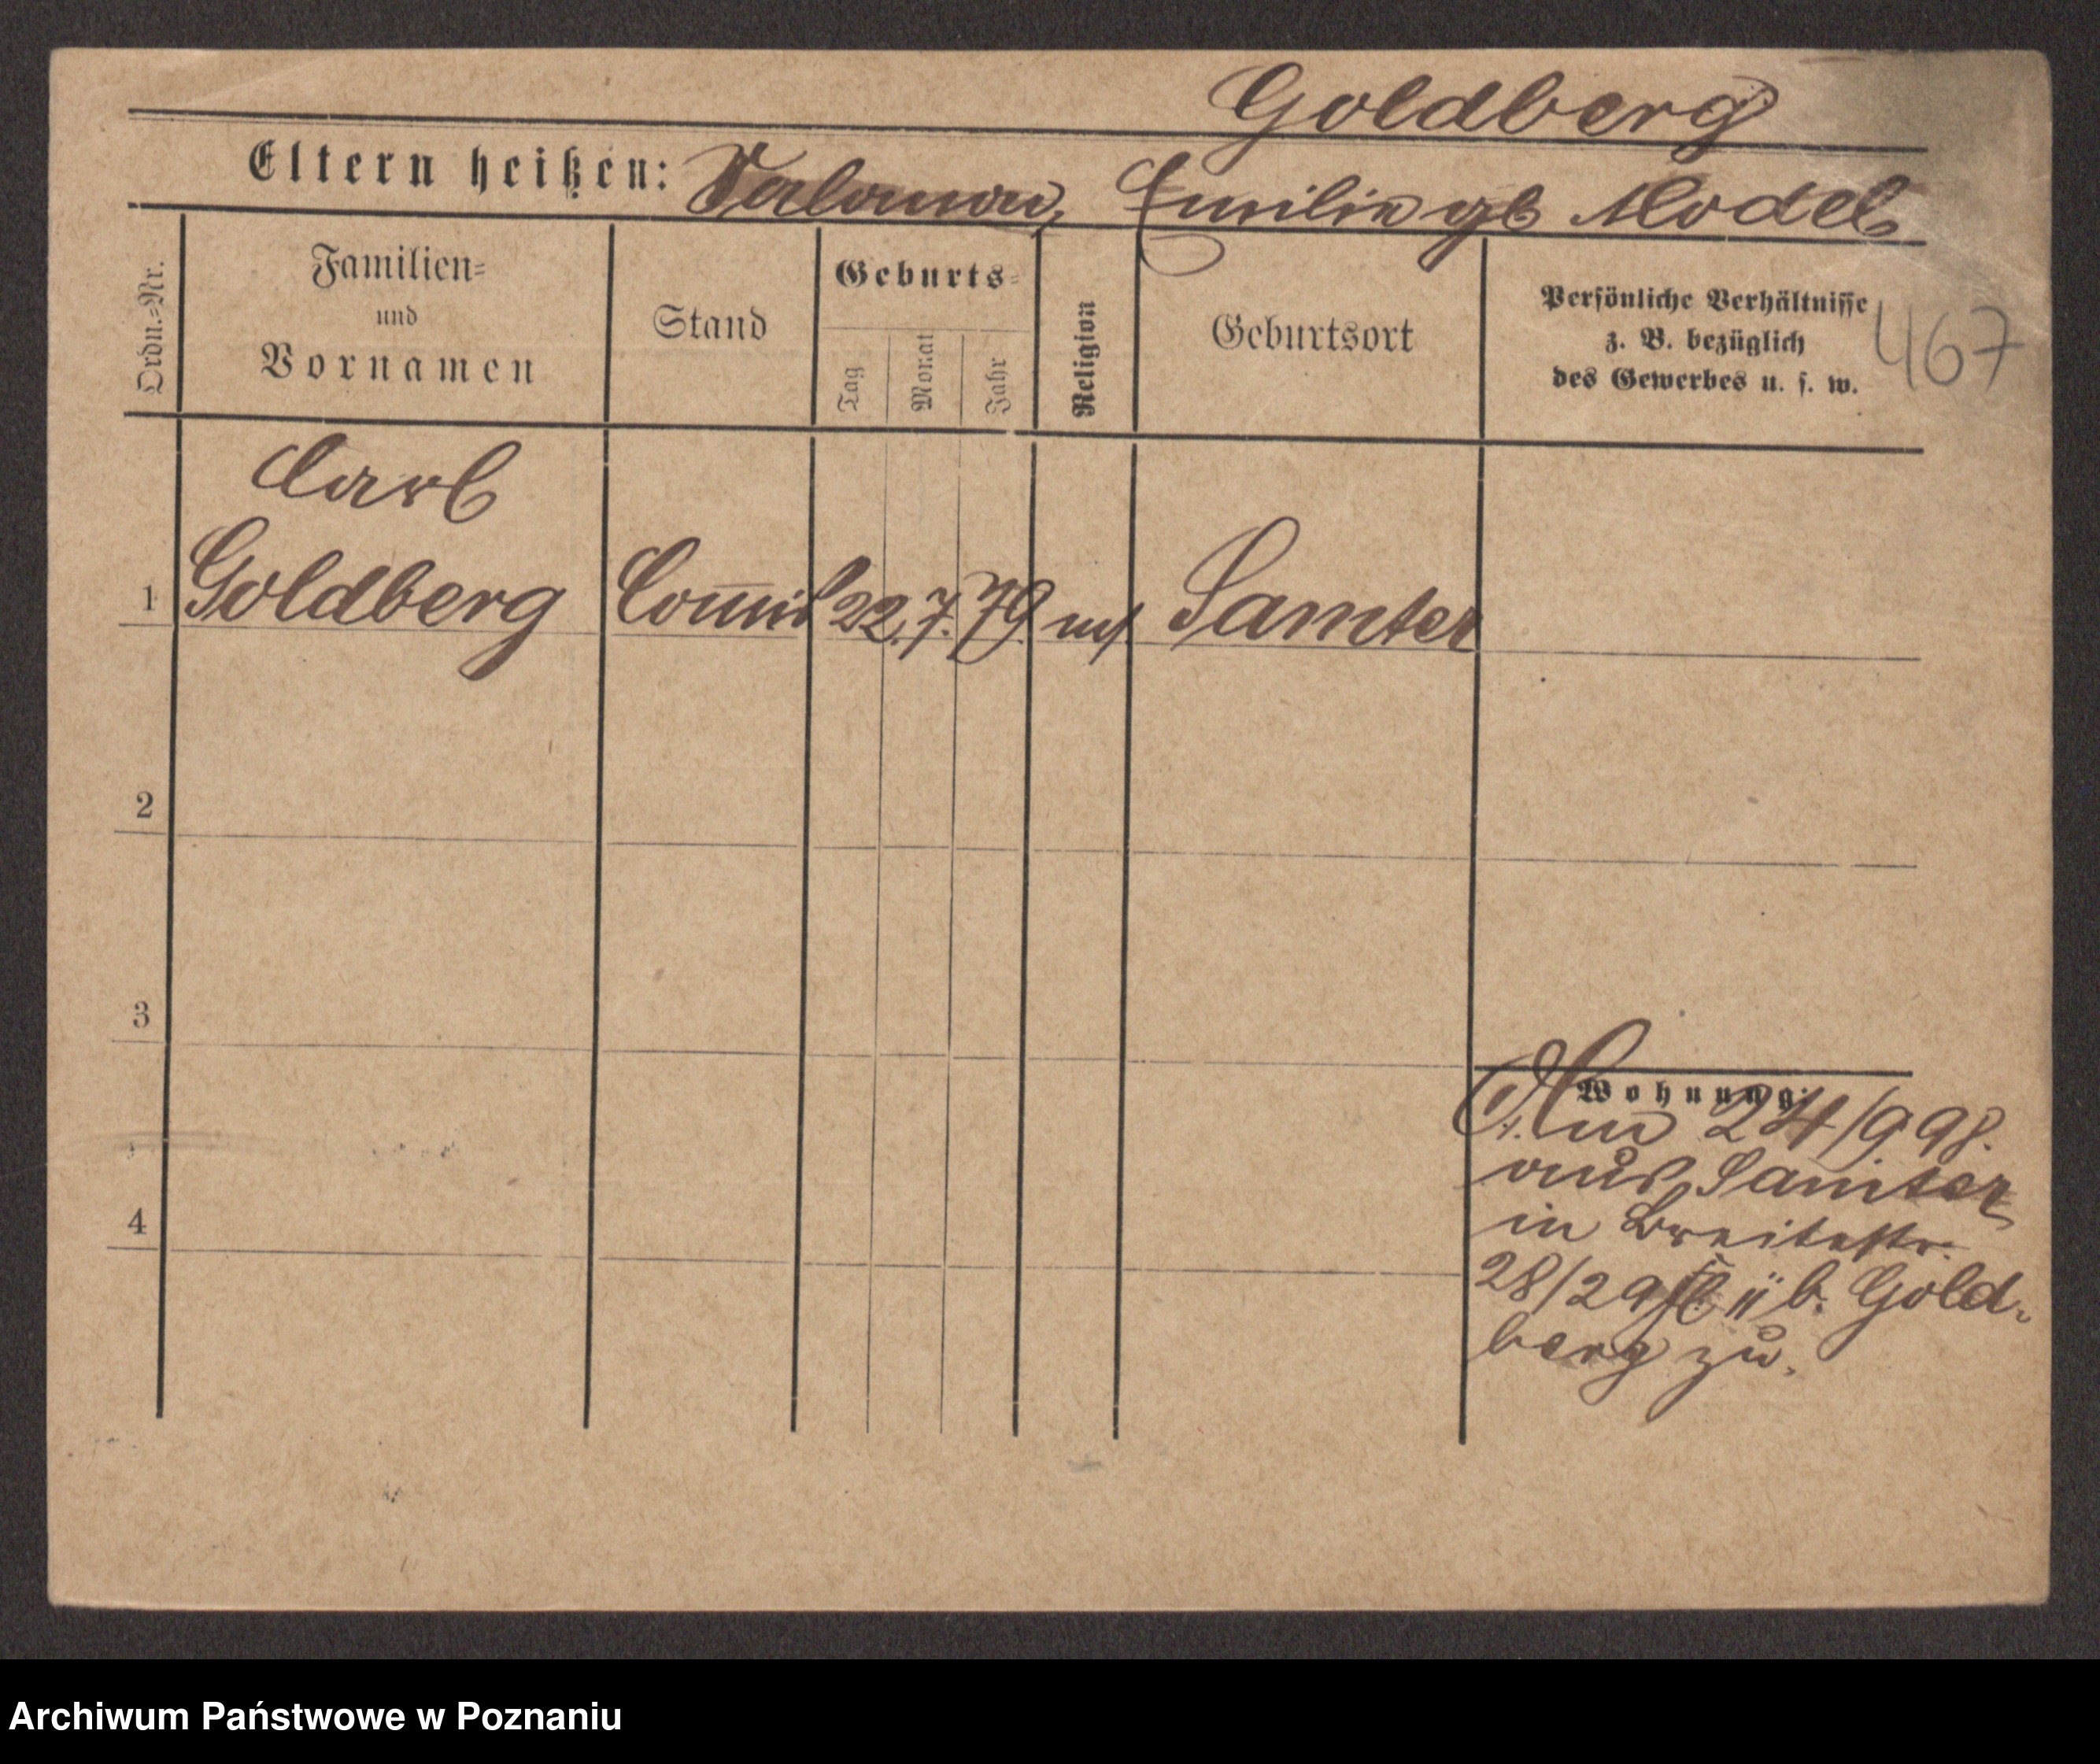 Goldberg
Eltern heißen: Salomon, Emilie gb Model
Ordn.=Nr.
Familien=
und
Vornamen
Stand
Geburts=
Tag
Monat
Jahr
Religion
Geburtsort
Persönliche Verhältnisse
z. B. bezüglich
des Gewerbes u. s. w.
467
Carl
1 Goldberg Com̅is 22. 7. 79 Samter
2
3
4
Wohnung:
Am 24/9 98.
aus Samter
in Breitestr.
28/29 II b. Gold-
berg zu.
Archiwum Państwowe w Poznaniu